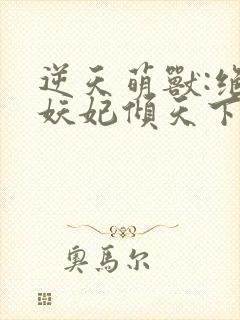 逆天萌獸:絕
妖妃傾天下
奧馬尔